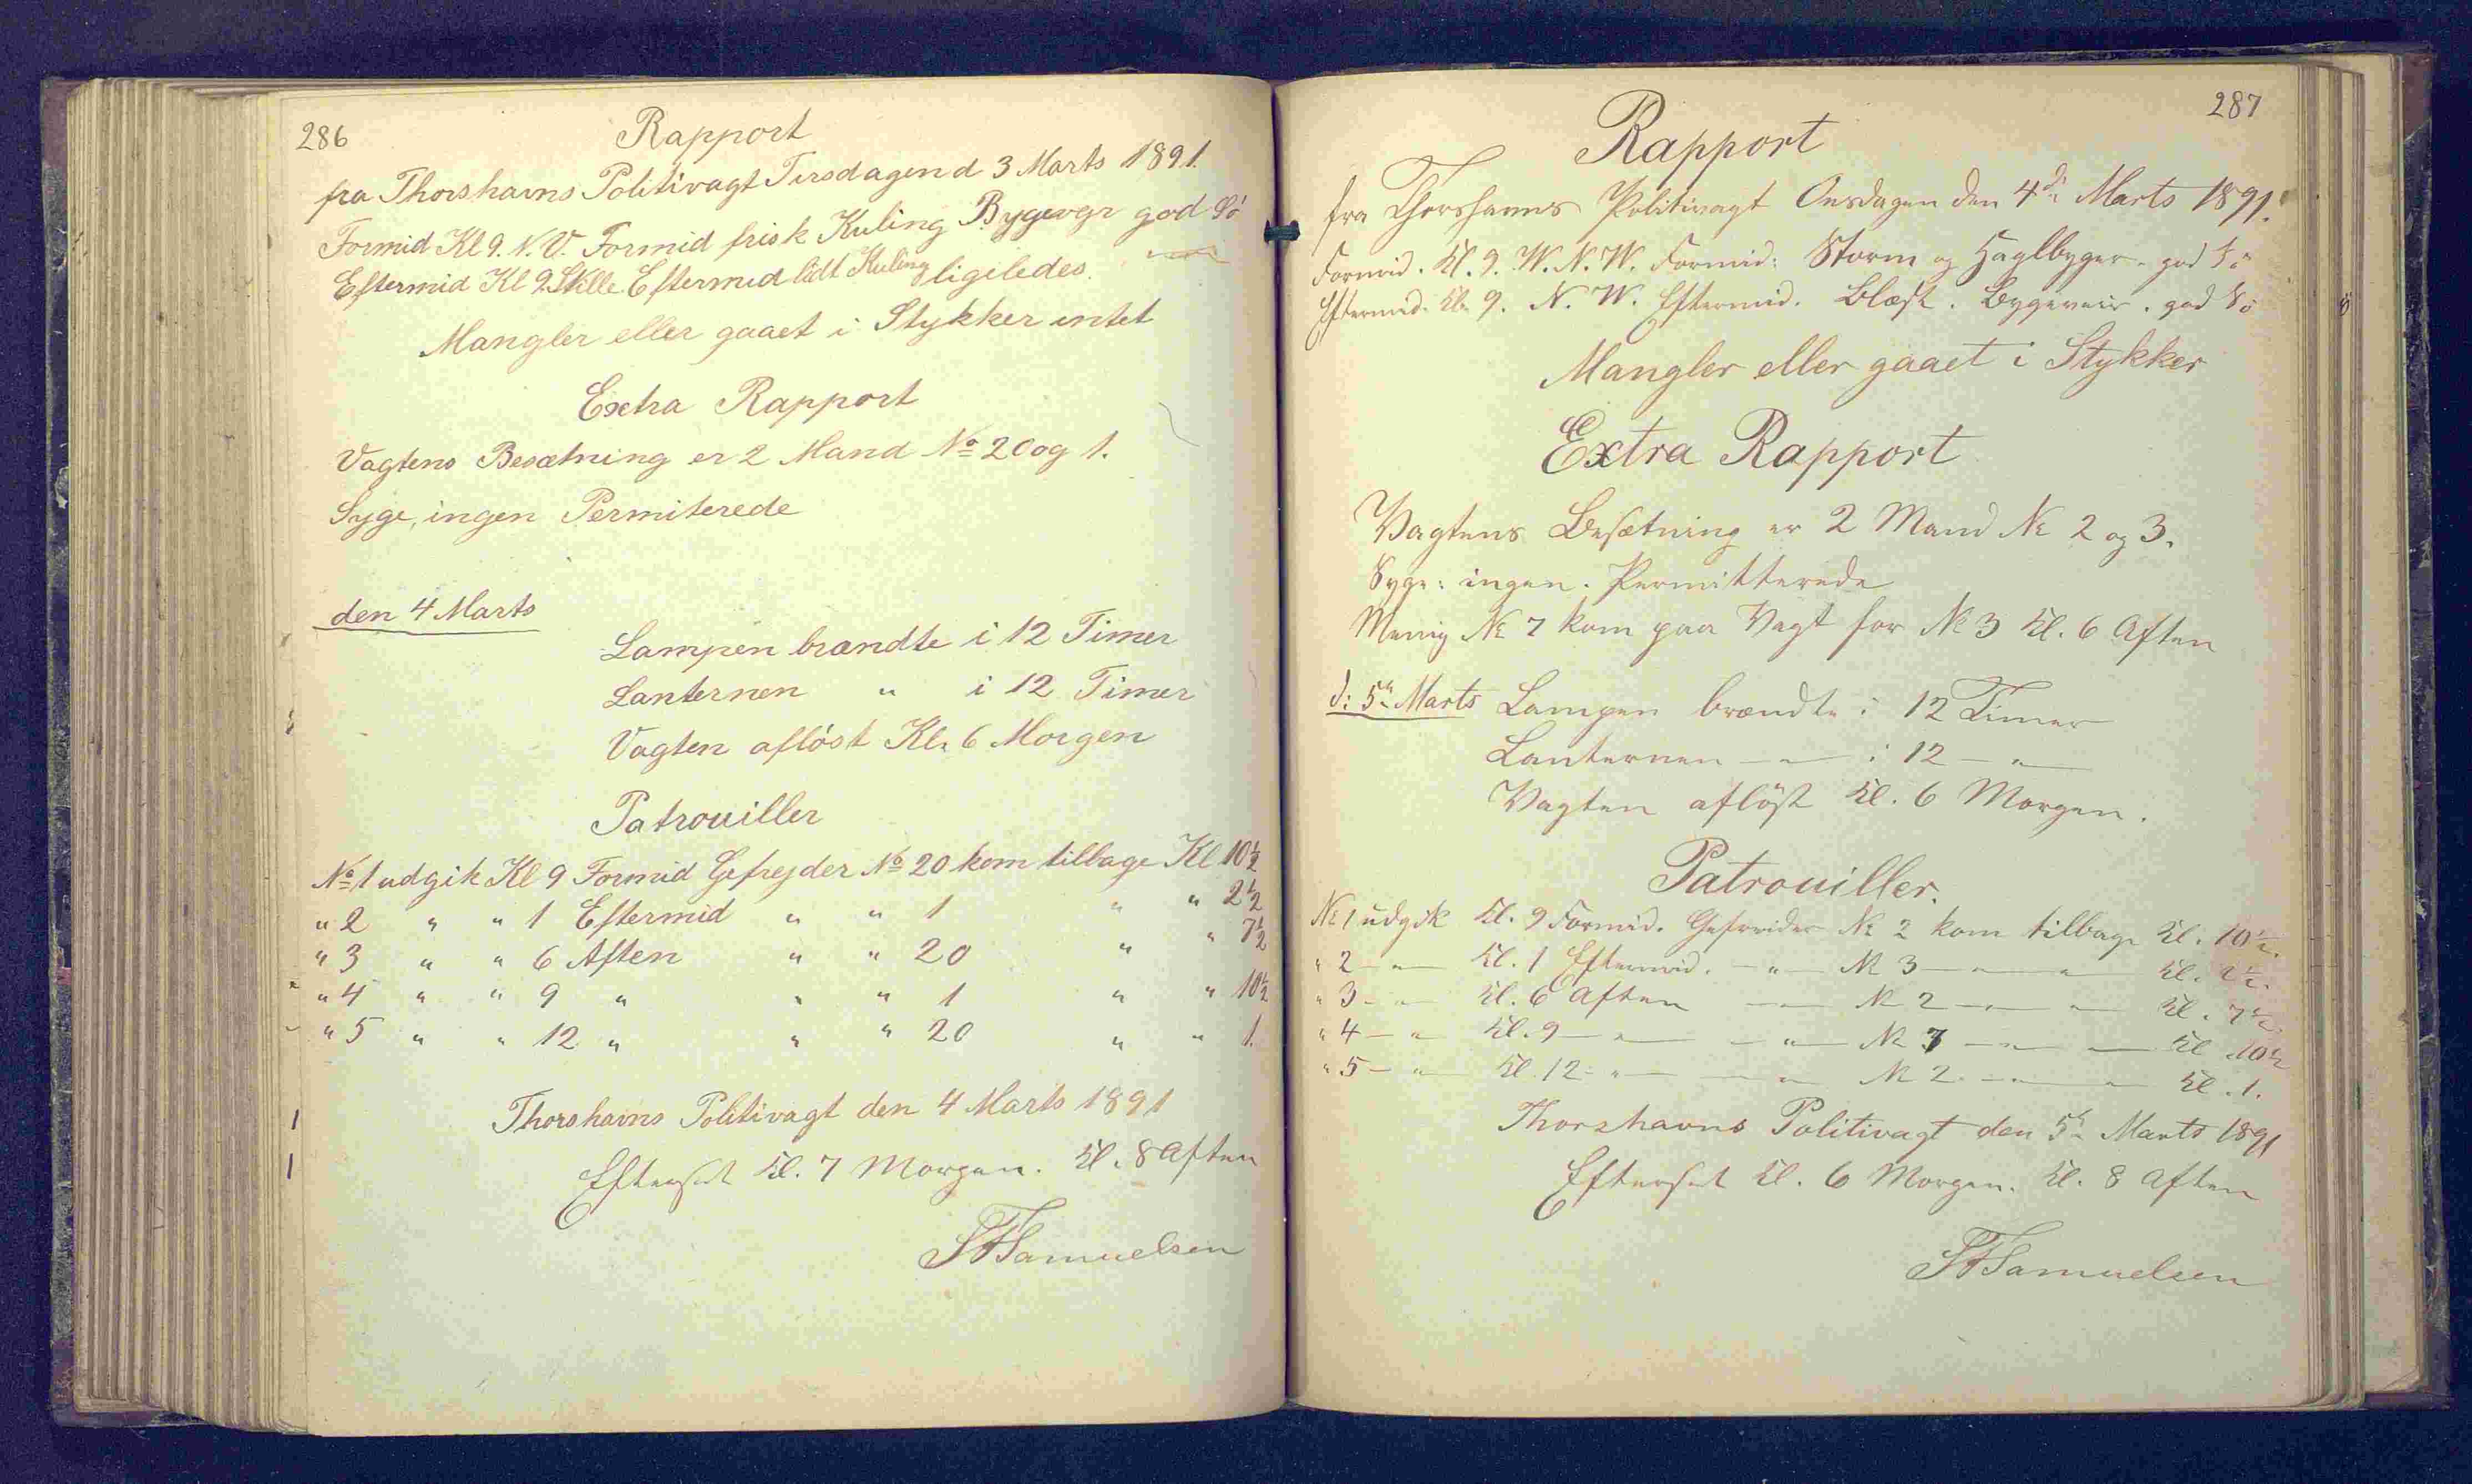 286
Rapport
fra Thorshavns Politivagt Tirsdagen d 3 Marts 1891.
Formid Kl 9. N.V. Formid frisk Kuling Bygevgr god Sö
Eftermid Kl 9 Stille Eftermid lidt Kuling ligeledes.
Mangler eller gaaet i Stykker intet
Extra Rapport
Vagtens Besætning er 2 Mand No 20 og 1.
Syge, ingen Permiterede
den 4 Marts
Lampen brændte i 12 Timer
Lanternen " i 12 Timer
Vagten afløst Kl. 6 Morgen
Patrouiller
No 1 udgik Kl 9 Formid Gefrejder No 20 kom tilbage Kl 10½
" 2 " " 1 Eftermid " " 1 " " 2½
" 3 " " 6 Aften " " 20 " " 7½
" 4 " " 9 " " " 1 " " 10½
" 5 " " 12 " " " 20 " " 1.
Thorshavns Politivagt den 4 Marts 1891
Efterset Kl. 7 Morgen. Kl. 8 Aften
Samuelsen
287
Rapport
fra Thorshavns Politivagt Onsdagen den 4de Marts 1891.
Formid. Kl. 9. W.N.W. Formid: Storm og Haglbyger - god Sö
Eftermid. Kl. 9. N.W. Eftermid. Blæst. Bygeveir. god Sö
Mangler eller gaaet i Stykker
Extra Rapport
Vagtens Besætning er 2 Mand No 2 og 3.
Syge: ingen. Permitterede
Menig No 7 kom paa Vagt for No 3 Kl. 6 Aften
d: 5te Marts Lampen brændte i 12 Timer
Lanternen — " — i 12 — " —
Vagten aflöst Kl. 6 Morgen.
Patrouiller.
No 1 udgik Kl. 9 Formid. Gefreider No 2 kom tilbage Kl. 10½.
" 2 — " — Kl. 1 Eftermid. — " — No 3 — " — " — Kl. 2½.
" 3 — " — Kl. 6 Aften — " — No 2 — " — " — Kl. 7½.
" 4 — " — Kl. 9 — " — — " — No 7 — " — " — Kl. 10½
" 5 — " — Kl. 12 — " — — " — No 2 — " — " — Kl. 1.
Thorshavns Politivagt den 5te Marts 1891
Efterset Kl. 6 Morgen. Kl. 8 Aften
Samuelsen